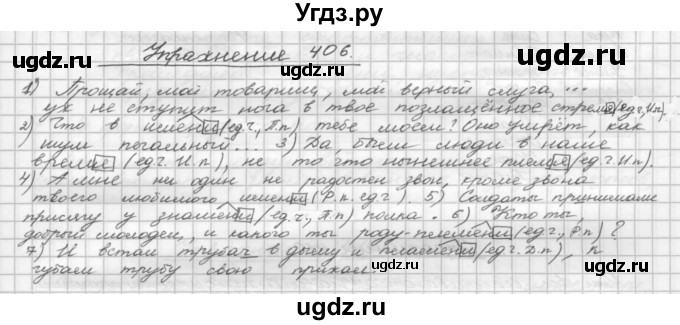 Угдз.ру
Упражнение 406.
1) Прощай, мой товарищ, мой верный слуга, ...
уж не ступит нога в твое позлащённое стремя (ед.ч., И.п).
2) Что в имени (ед.ч., П.п) тебе моем? Оно умрёт, как
шум печальный... 3) Да, были люди в наше
время (ед.ч. И.п), не то что нынешнее племя (ед.ч. И.п).
4) А мне ни один не радостен звон, кроме звона
твоего любимого имени (Р.п. ед.ч). 5) Солдаты принимали
присягу у знамени (ед.ч., П.п) полка. 6) Кто ты,
добрый молодец, и какого ты роду-племени (ед.ч., Р.п)?
7) И встал трубач в дыму и пламени (ед.ч., Д.п), к
губам трубу свою прижал.
uwdz.ru
uwdz.ru
uwdz.ru
uwdz.ru
uwdz.ru
uwdz.ru
uwdz.ru
uwdz.ru
uwdz.ru